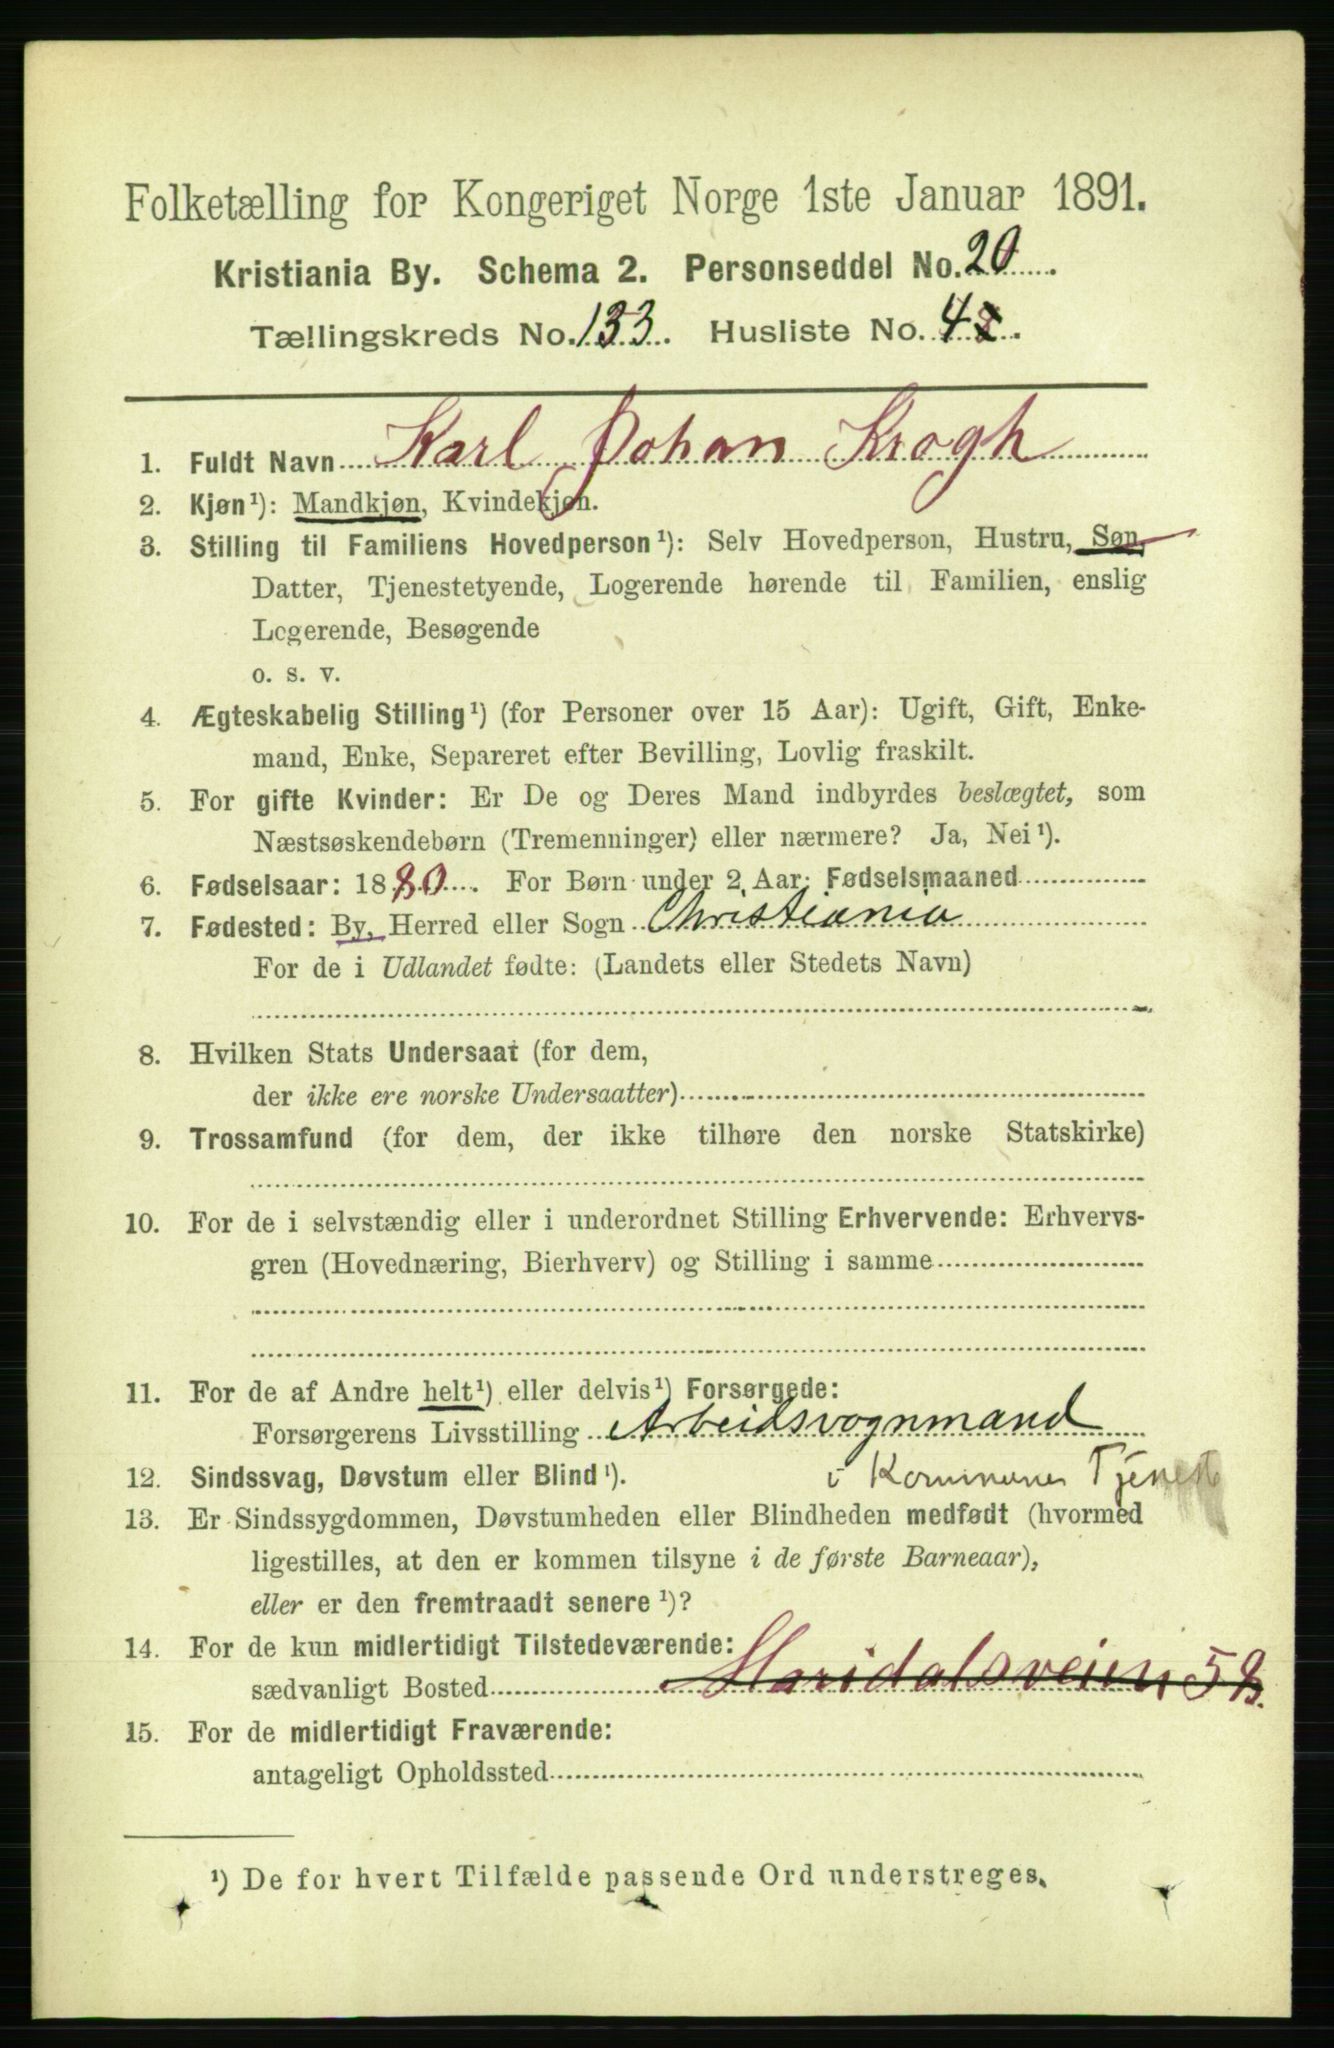 Folketælling for Kongeriget Norge 1ste Januar 1891.
Kristiania By. Schema 2. Personseddel No. 20.
Tællingskreds No. 133. Husliste No. 4.
1. Fuldt Navn Karl Johan Krogh
2. Kjøn¹): Mandkjøn, Kvindekjøn.
3. Stilling til Familiens Hovedperson¹): Selv Hovedperson, Hustru, Søn,
Datter, Tjenestetyende, Logerende hørende til Familien, enslig
Logerende, Besøgende
o. s. v.
4. Ægteskabelig Stilling¹) (for Personer over 15 Aar): Ugift, Gift, Enke-
mand, Enke, Separeret efter Bevilling, Lovlig fraskilt.
5. For gifte Kvinder: Er De og Deres Mand indbyrdes beslægtet, som
Næstsøskendebørn (Tremenninger) eller nærmere? Ja, Nei¹).
6. Fødselsaar: 1880. For Børn under 2 Aar: Fødselsmaaned
7. Fødested: By, Herred eller Sogn Christiania
For de i Udlandet fødte: (Landets eller Stedets Navn)
8. Hvilken Stats Undersaat (for dem,
der ikke ere norske Undersaatter)
9. Trossamfund (for dem, der ikke tilhøre den norske Statskirke)
10. For de i selvstændig eller i underordnet Stilling Erhvervende: Erhvervs-
gren (Hovednæring, Bierhverv) og Stilling i samme
11. For de af Andre helt¹) eller delvis¹) Forsørgede:
Forsørgerens Livsstilling Arbeidsvognmand
12. Sindssvag, Døvstum eller Blind¹). i Kommunens Tjeneste
13. Er Sindssygdommen, Døvstumheden eller Blindheden medfødt (hvormed
ligestilles, at den er kommen tilsyne i de første Barneaar),
eller er den fremtraadt senere¹)?
14. For de kun midlertidigt Tilstedeværende:
sædvanligt Bosted Maridalsveien 58.
15. For de midlertidigt Fraværende:
antageligt Opholdssted
¹) De for hvert Tilfælde passende Ord understreges.